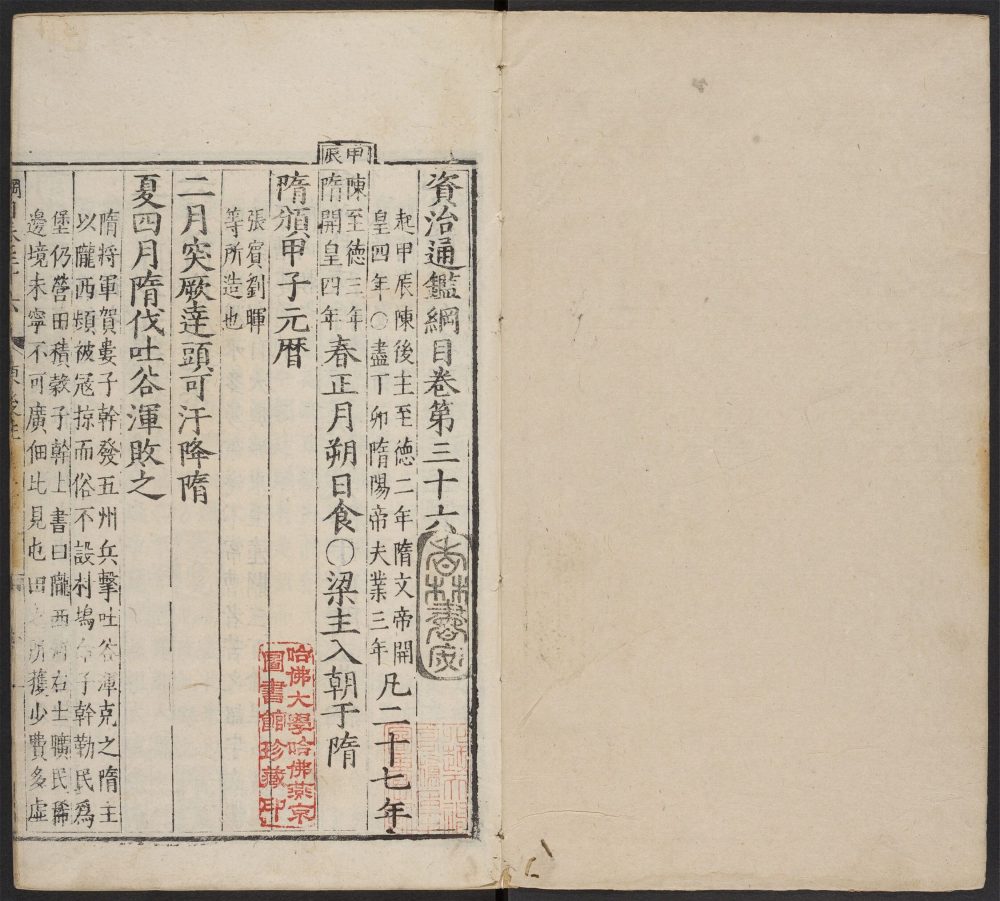 資治通鑑綱目卷第三十六
起甲辰陳後主至德二年隋文帝開
皇四年○盡丁卯隋陽帝夫業三年
凡二十七年
甲辰
陳至德三年
隋開皇四年
春正月朔日食○梁主入朝于隋
隋頒甲子元暦
張賓劉暉
等所造也
二月突厥達頭可汗降隋
夏四月隋伐吐谷渾敗之
隋將軍賀婁子幹發五州兵擊吐谷渾克之隋主
以隴西頻被冦掠而俗不設村塢令子幹勒民爲
堡仍營田積穀子幹上書曰隴西河右土曠民稀
邊境未寧不可廣佃比見屯田之所獲少費多虛
哈佛大學哈佛燕京
圖書館珍藏印